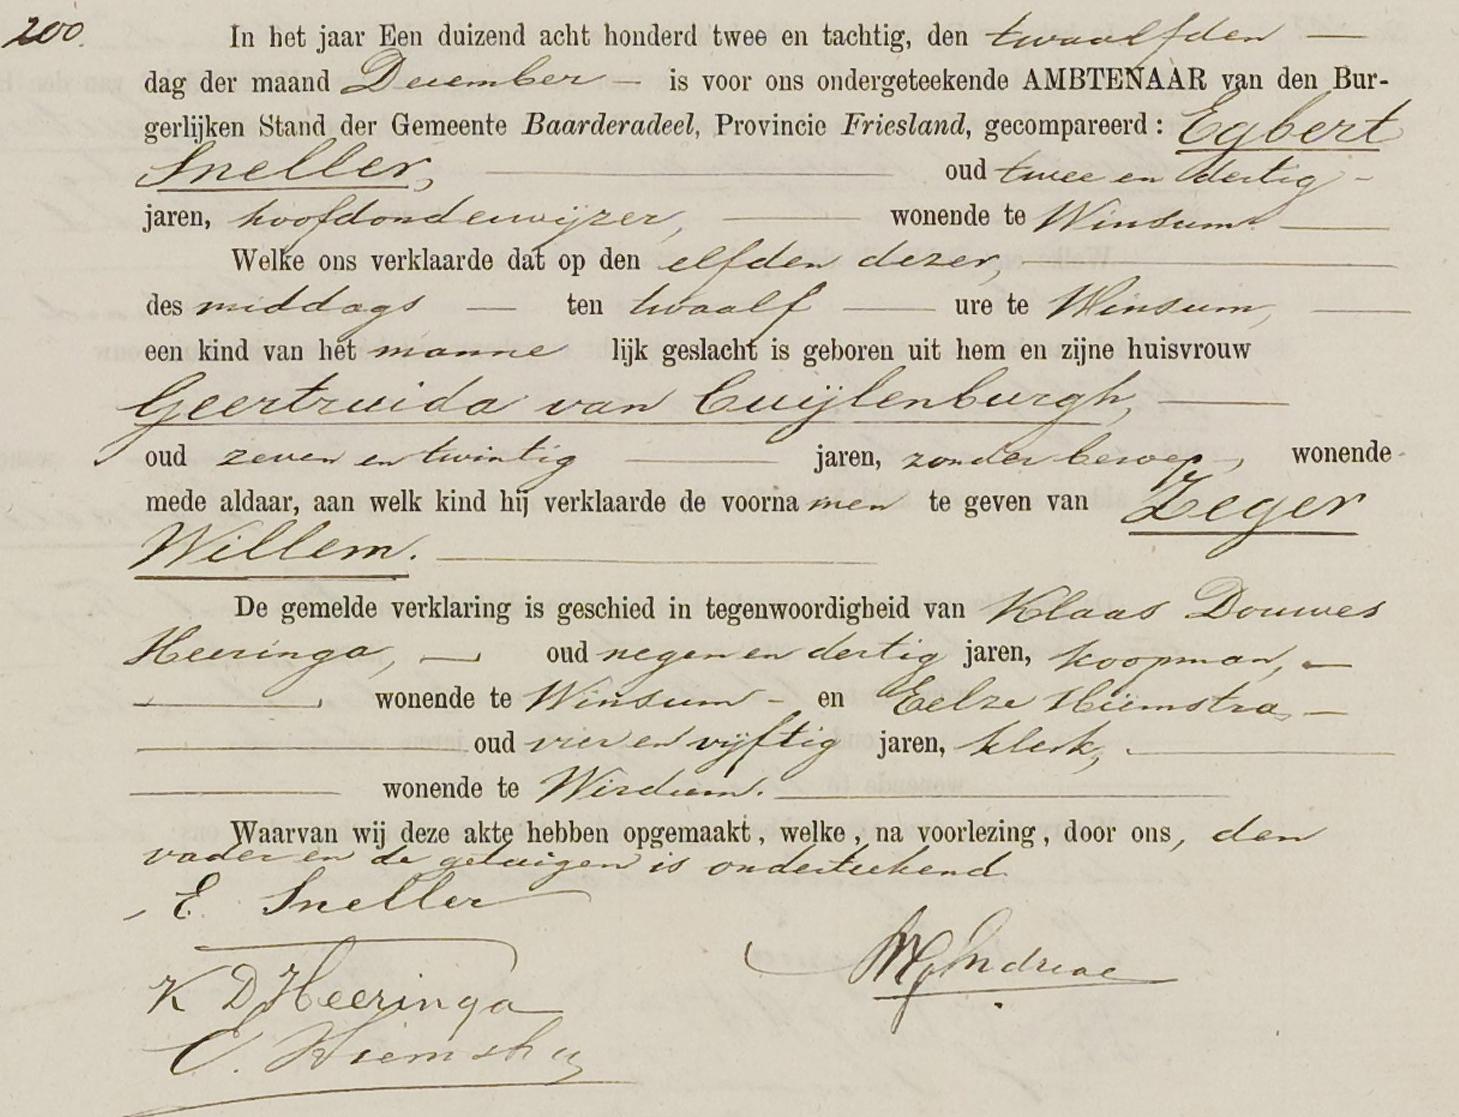 200.
In het jaar Een duizend acht honderd twee en tachtig, den twaalfden —
dag der maand December — is voor ons ondergeteekende AMBTENAAR van den Bur-
gerlijken Stand der Gemeente Baarderadeel, Provincie Friesland, gecompareerd: Egbert
Sneller, — oud twee en dertig -
jaren, hoofdonderwijzer, — wonende te Winsum. —
Welke ons verklaarde dat op den elfden dezer, —
des middags — ten twaalf — ure te Winsum, —
een kind van het manne lijk geslacht is geboren uit hem en zijne huisvrouw
Geertruida van Cuijlenburgh, —
oud zeven en twintig — jaren, zonder beroep, wonende
mede aldaar, aan welk kind hij verklaarde de voorna men te geven van Zeger
Willem. —
De gemelde verklaring is geschied in tegenwoordigheid van Klaas Douwes
Heeringa, — oud negen en dertig jaren, koopman, —
— wonende te Winsum - en Eelze Hiemstra, —
— oud vier en vijftig jaren, klerk, —
— wonende te Wirdum. —
Waarvan wij deze akte hebben opgemaakt, welke, na voorlezing, door ons, den
vader en de getuigen is onderteekend.
E. Sneller
K D Heeringa
E. Hiemstra
Andreae